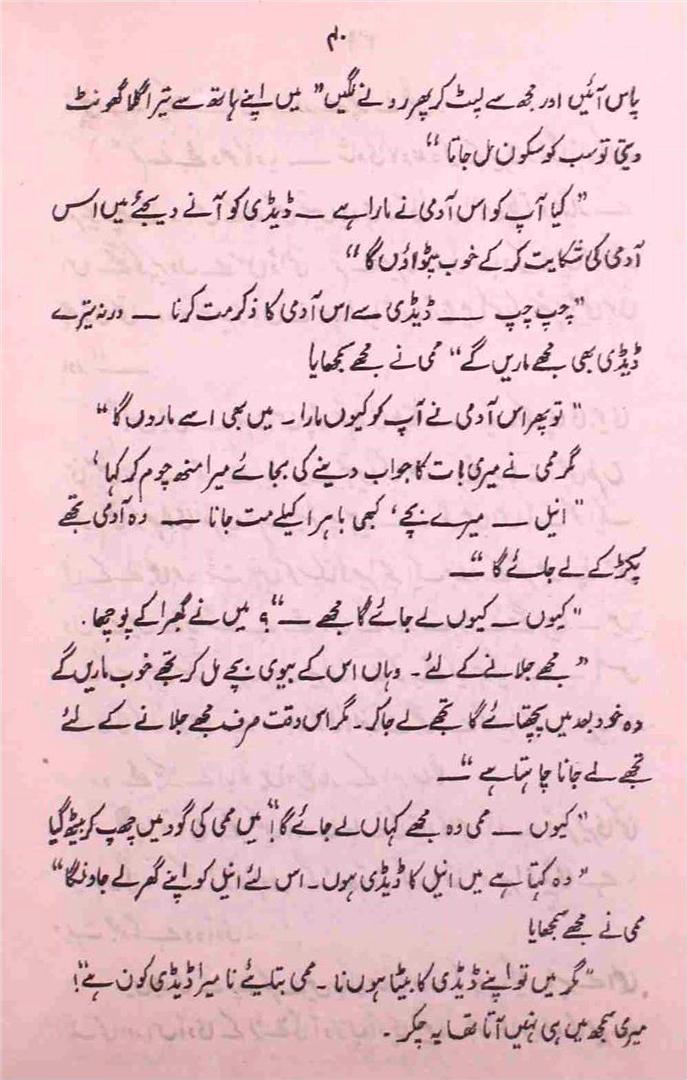 ۴۰
پاس آئیں اور مجھ سے لپٹ کر پھر رونے لگیں” میں اپنے ہاتھ سے تیرا گلا گھونٹ
دیتی تو سب کو سکون مل جاتا“
”کیا آپ کو اس آدمی نے مارا ہے ــ ڈیڈی کو آنے دیجئے میں اس
آدمی کی شکایت کرکے خوب پٹواؤں گا“
”چپ چپ ــ ڈیڈی سے اس آدمی کا ذکر مت کرنا ــ ورنہ تیرے
ڈیڈی بھی مجھے ماریں گے“ ممی نے مجھے سمجھایا
”تو پھر اس آدمی نے آپ کو کیوں مارا۔ میں بھی اسے ماروں گا“
مگر ممی نے میری بات کا جواب دینے کی بجائے میرا منھ چوم کر کہا‘
”انیل ــ میرے بچے‘ کبھی باہر اکیلے مت جانا ــ وہ آدمی تجھے
پکڑ کے لے جائے گا“ــ
”کیوں ــ کیوں لے جائے گا مجھے ــ“؟ میں نے گھبرا کے پوچھا.
”مجھے جلانے کے لئے۔ وہاں اس کے بیوی بچے مل کر تجھے خوب ماریں گے
وہ خود بعد میں پچھتائے گا تجھے لے جاکر۔ مگر اس وقت صرف مجھے جلانے کے لئے
تجھے لے جانا چاہتا ہے“ــ
”کیوں ــ ممی وہ مجھے کہاں لے جائے گا“! میں ممی کی گود میں چھپ کر بیٹھ گیا
”وہ کہتا ہے میں انیل کا ڈیڈی ہوں۔ اس لئے انیل کو اپنے گھر لے جاؤنگا“
ممی نے مجھے سمجھایا
”مگر میں تو اپنے ڈیڈی کا بیٹا ہوں نا۔ ممی بتایئے نا میرا ڈیڈی کون ہے“!
میری سمجھ میں ہی نہیں آتا تھا یہ چکر۔